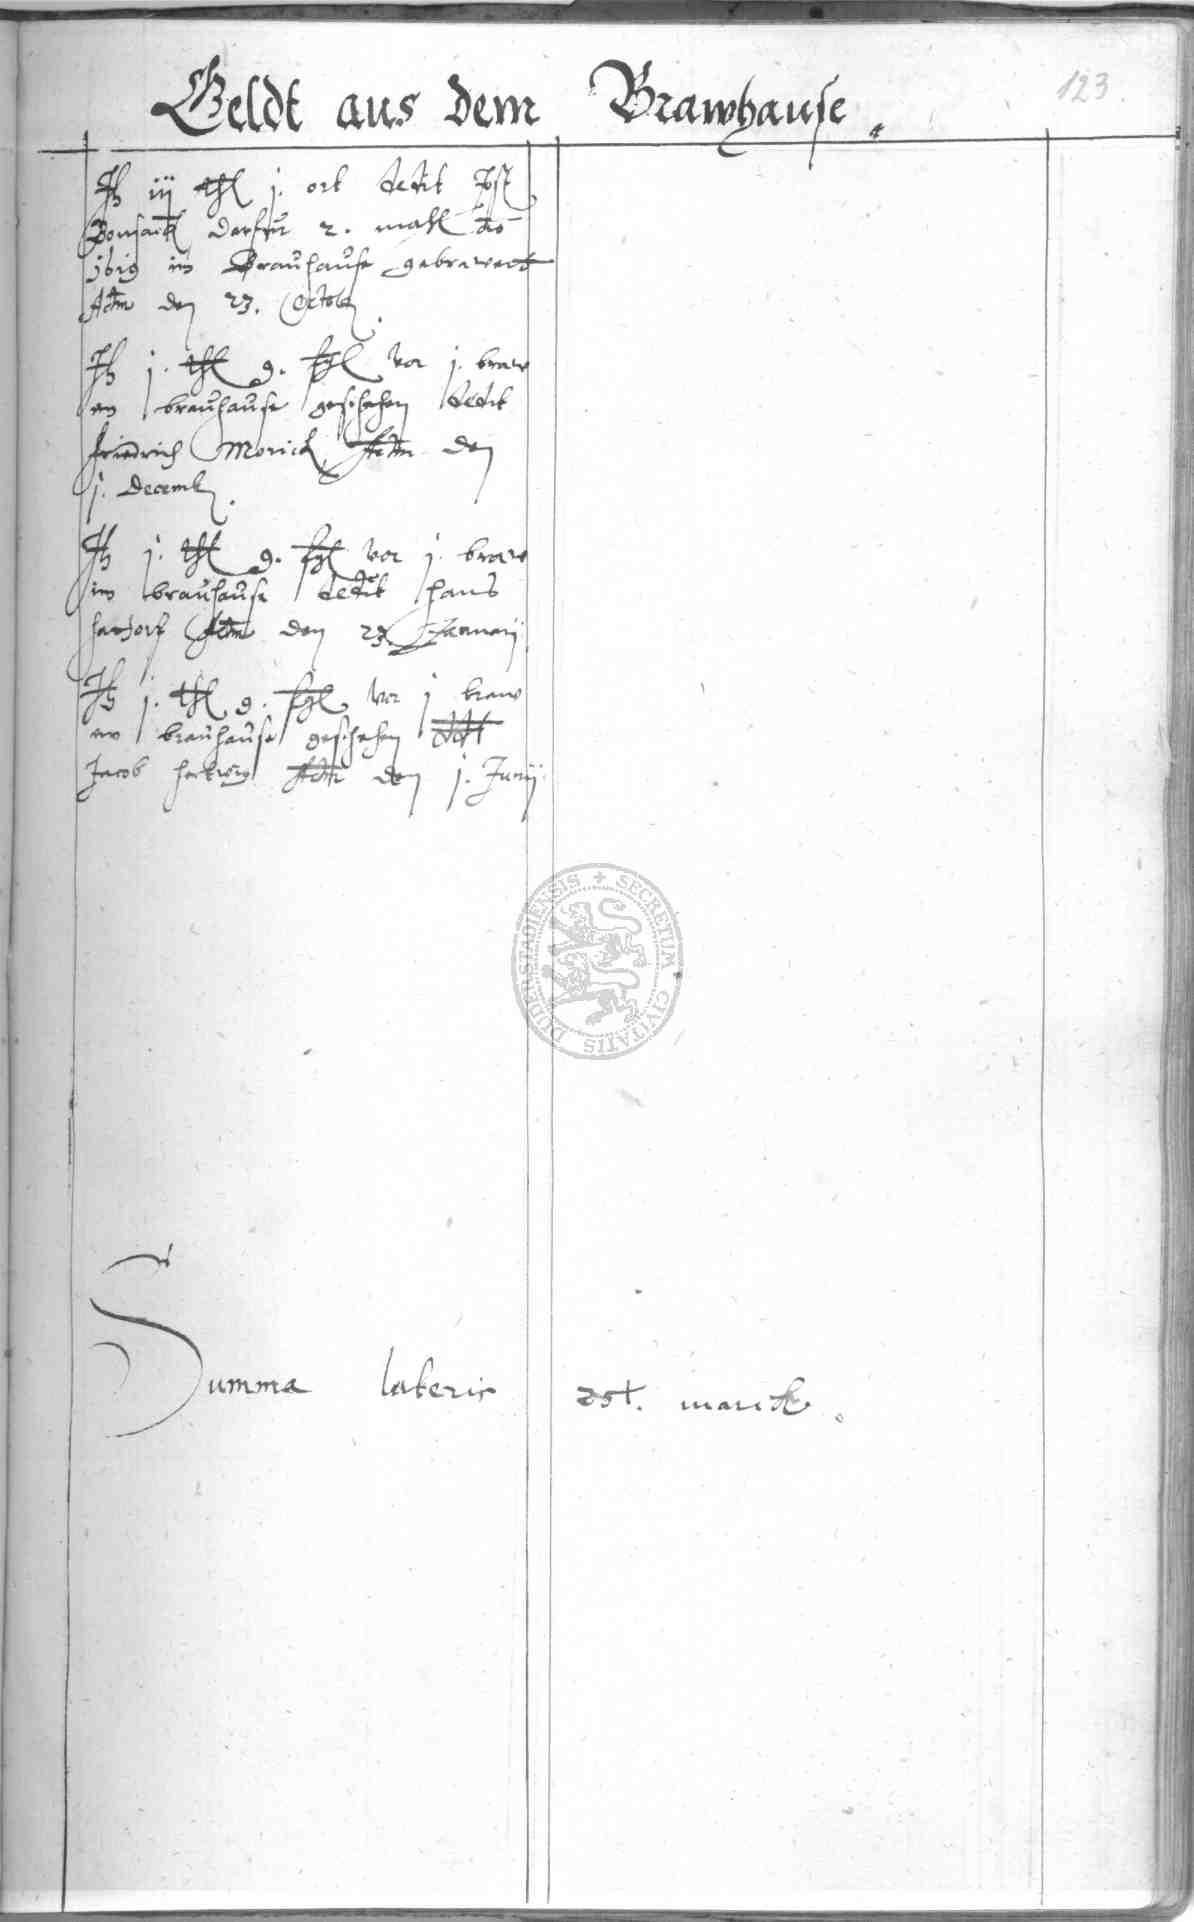 123
Geldt aus dem Brawhause
It iij thl j. ort dedit Jost
Bonsack darfur 2. mahl
im Brauhause gebrawet
Actm den 23. Octob
It j. thl 9. ßgl vor j. braw
en brauhause geschehen dedit
friedrich Morick Actm den
j. decemb
It j. thl 9. ßgl vor j. braw
im brauhause dedit hans
Actm den 23 Januarij
It j. thl 9. ßgl vor j braw
en brauhause geschehen dedit
Jacob hartwig Actm den j. Junij
SECRETUM CIVITATIS DUDERSTADIENSIS
Summa lateris marck